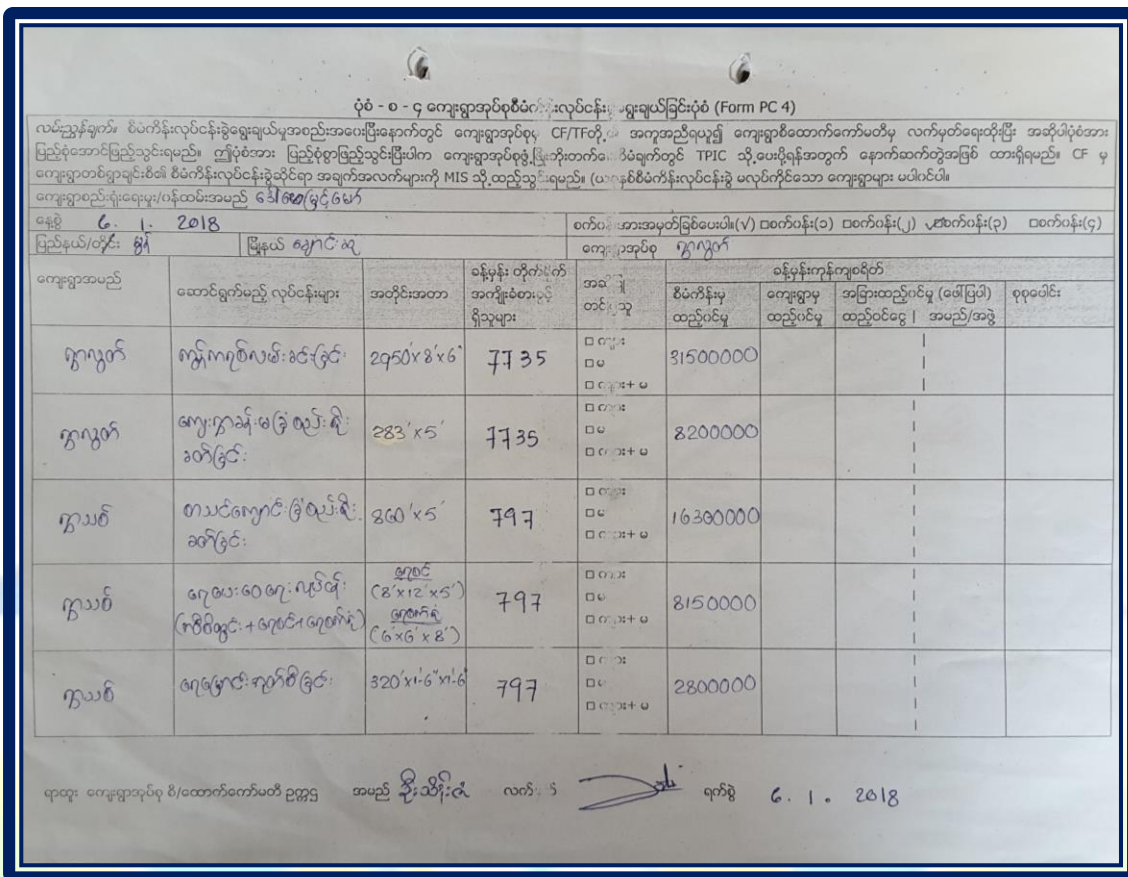 ပုံစံ - စ - ၄ ကျေးရွာအုပ်စုစီမံကိန်းလုပ်ငန်းခွဲရွေးချယ်ခြင်းပုံစံ (Form PC 4)
လမ်းညွှန်ချက်။ စီမံကိန်းလုပ်ငန်းခွဲရွေးချယ်မှုအစည်းအဝေးပြီးနောက်တွင် ကျေးရွာအုပ်စုမှ CF/TFတို့၏ အကူအညီရယူ၍ ကျေးရွာစီထောက်ကော်မတီမှ လက်မှတ်ရေးထိုးပြီး အဆိုပါပုံစံအား
ပြည့်စုံအောင်ဖြည့်သွင်းရမည်။ ဤပုံစံအား ပြည့်စုံစွာဖြည့်သွင်းပြီးပါက ကျေးရွာအုပ်စုဖွံ့ဖြိုးတိုးတက်ရေးစီမံချက်တွင် TPIC သို့ပေးပို့ရန်အတွက် နောက်ဆက်တွဲအဖြစ် ထားရှိရမည်။ CF မှ
ကျေးရွာတစ်ရွာချင်းစီ၏ စီမံကိန်းလုပ်ငန်းခွဲဆိုင်ရာ အချက်အလက်များကို MIS သို့ထည့်သွင်းရမည်။ (ယခုနှစ်စီမံကိန်းလုပ်ငန်းခွဲ မလုပ်ကိုင်သော ကျေးရွာများ မပါဝင်ပါ။
ကျေးရွာစည်းရုံးရေးမှူး/ဝန်ထမ်းအမည် ဒေါ်မြင့်မော်
နေ့စွဲ 6. 1. 2018 စက်ဝန်းအားအမှတ်ခြစ်ပေးပါ။(√) □စက်ဝန်း(၁) □စက်ဝန်း(၂) √□စက်ဝန်း(၃) □စက်ဝန်း(၄)
ပြည်နယ်/တိုင်း ရှမ်း မြို့နယ် ချောင်းဆူ ကျေးရွာအုပ်စု ရွာလွတ်
ကျေးရွာအမည် ဆောင်ရွက်မည့် လုပ်ငန်းများ အတိုင်းအတာ ခန့်မှန်း တိုက်ရိုက် အကျိုးခံစားခွင့် ရှိသူများ အဆိုပြု တင်သူ ခန့်မှန်းကုန်ကျစရိတ်
စီမံကိန်းမှ ထည့်ဝင်မှု ကျေးရွာမှ ထည့်ဝင်မှု အခြားထည့်ဝင်မှု (ဖော်ပြပါ) ထည့်ဝင်ငွေ | အမည်/အဖွဲ့ စုစုပေါင်း
ရွာလွတ် ကွန်ကရစ်လမ်းခင်းခြင်း 2950'x8'x6" 7735 □ ကျား □ မ □ ကျား+ မ 31500000
ရွာလွတ် ကျေးရွာခန်းမခြံစည်းရိုးခတ်ခြင်း 283'x5' 7735 □ ကျား □ မ □ ကျား+ မ 8200000
ရွာသစ် စာသင်ကျောင်းခြံစည်းရိုးခတ်ခြင်း 860'x5' 797 □ ကျား □ မ □ ကျား+ မ 16300000
ရွာသစ် ရေပေးဝေရေးလုပ်ငန်း (အဝီစိတွင်း+ရေစင်+ရေစက်ရုံ) ရေစင် (8'x12'x5') ရေစက်ရုံ (6'x6'x8') 797 □ ကျား □ မ □ ကျား+ မ 8150000
ရွာသစ် ရေမြောင်းအုတ်စီခြင်း 320'x1'-6"x1'-6" 797 □ ကျား □ မ □ ကျား+ မ 2800000
ရာထူး ကျေးရွာအုပ်စု စီ/ထောက်ကော်မတီ ဥက္ကဋ္ဌ အမည် ဦးသိန်းဇံ လက်မှတ် ရက်စွဲ 6. 1. 2018